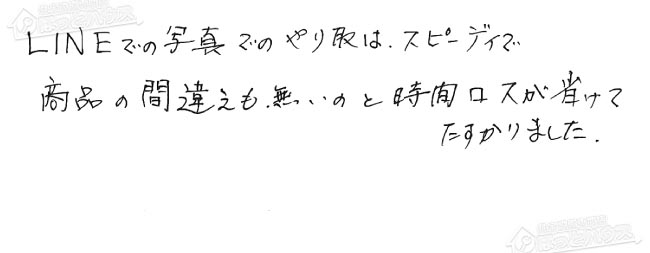 LINEでの写真でのやり取は、スピーディで
商品の間違えも、無いのと時間ロスが省けて
たすかりました.